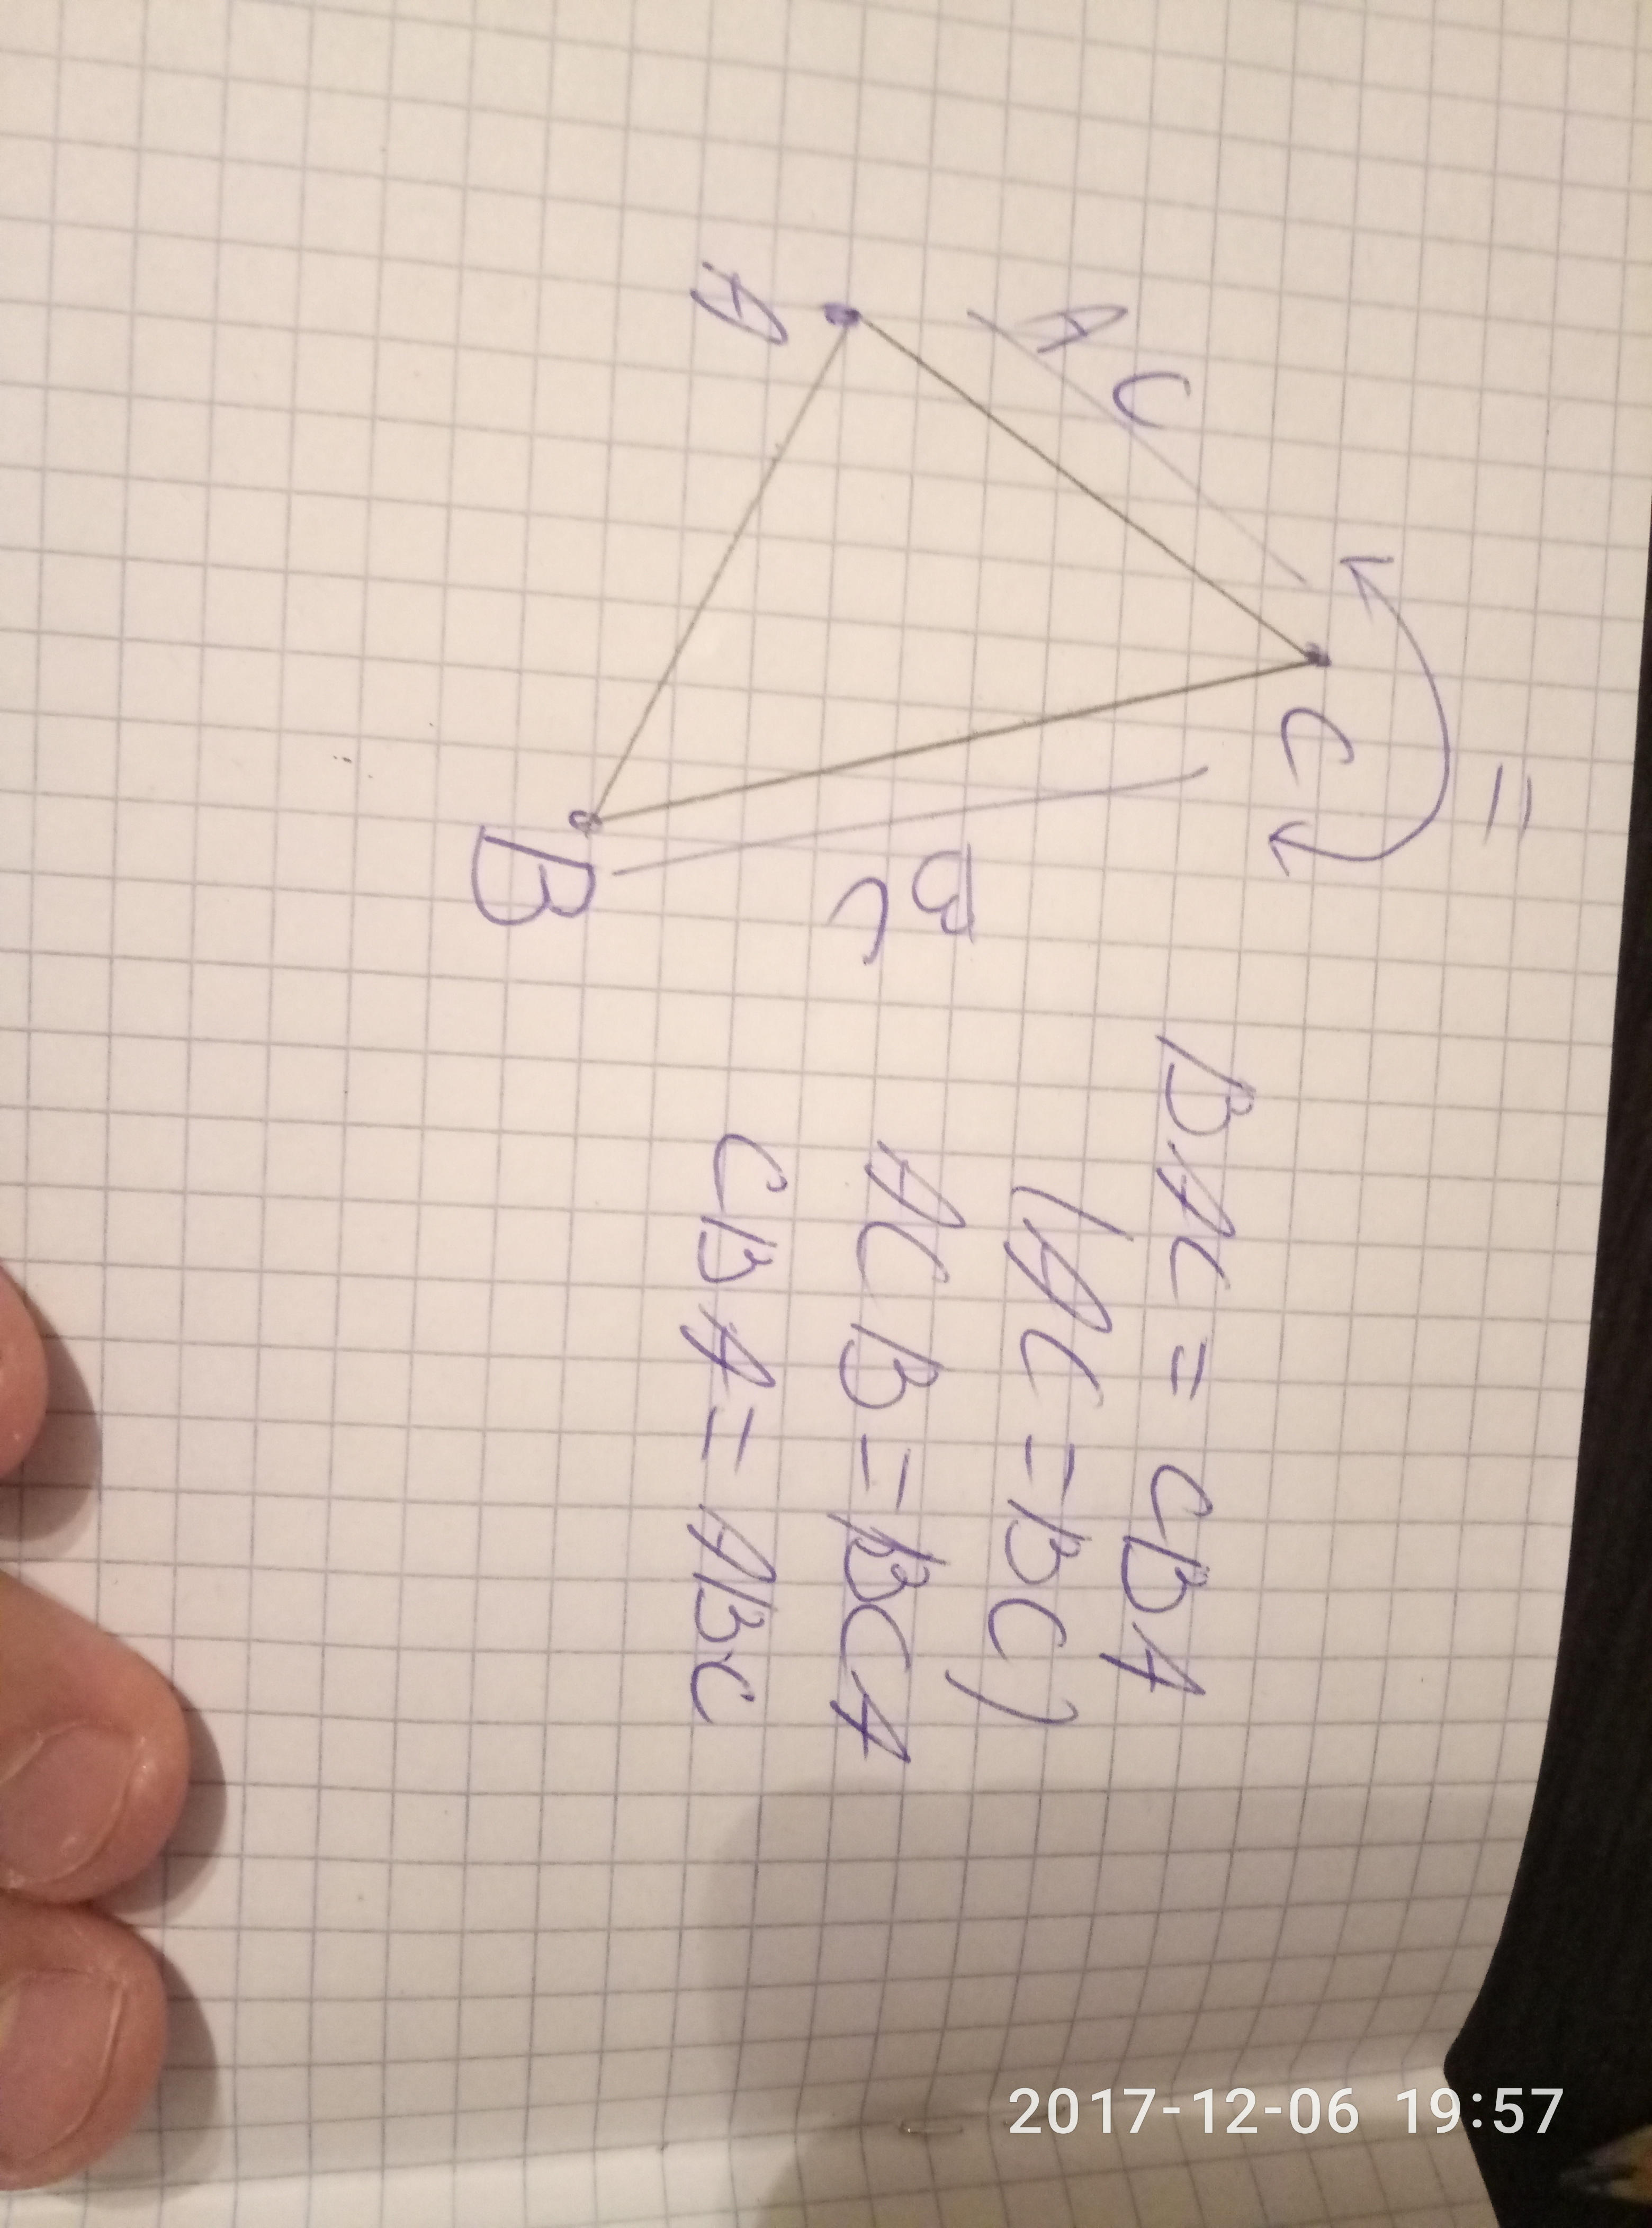 =
C
A C
B C
A
B
BAC = CBA
(AC = BC)
ACB = BCA
CBA = ABC
2017-12-06 19:57